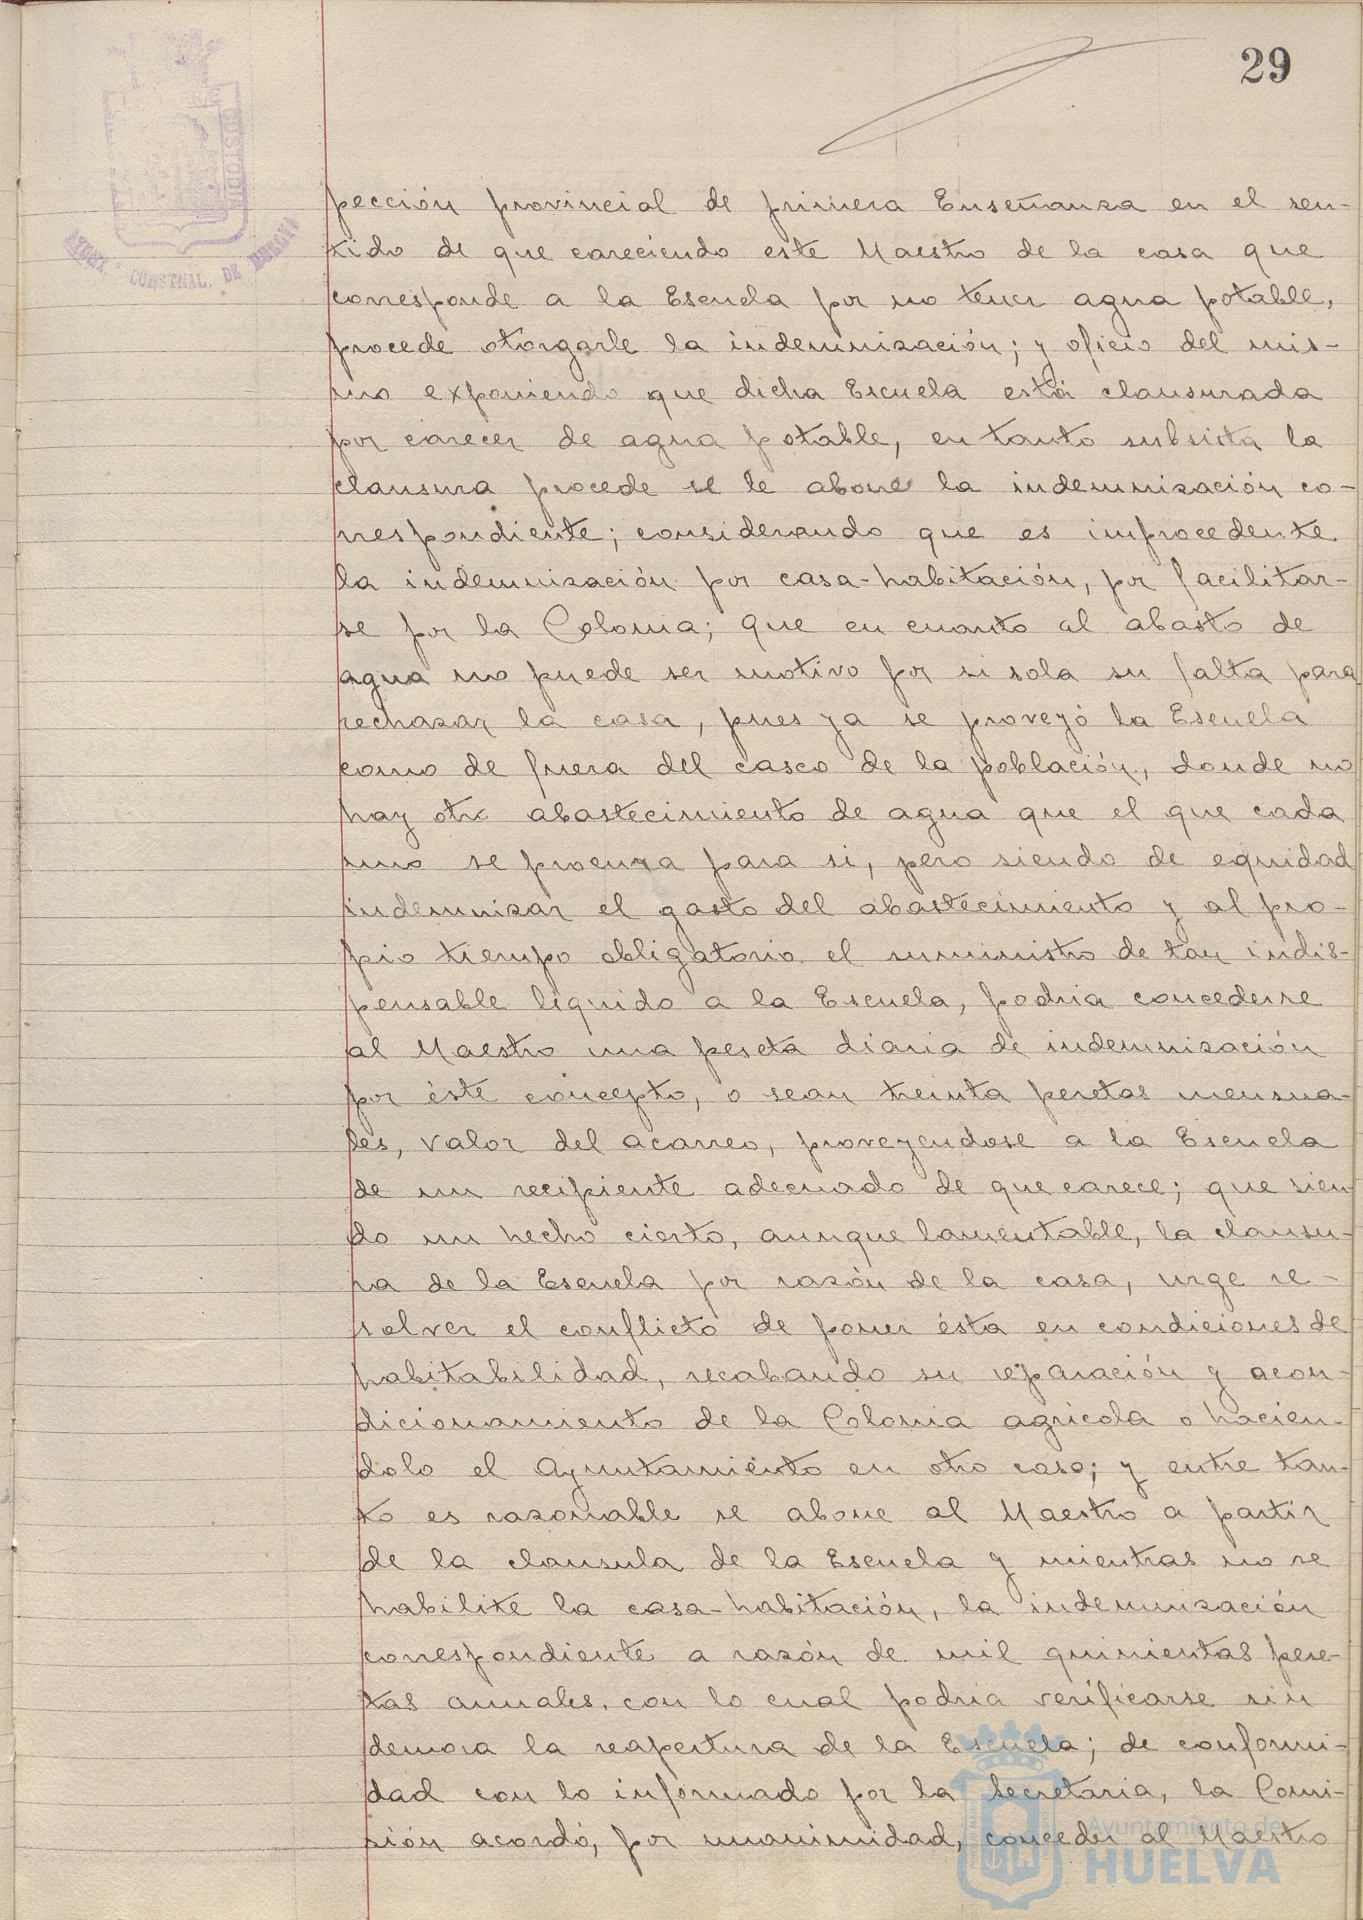 29
CUSTODIA
CONSTNAL. DE HUELVA
pección provincial de primera Enseñanza en el sen-
tido de que careciendo este Maestro de la casa que
corresponde a la Escuela por no tener agua potable,
procede otorgarle la indemnización; y oficio del mis-
mo exponiendo que dicha Escuela está clausurada
por carecer de agua potable, en tanto subsista la
clausura procede se le abone la indemnización co-
rrespondiente; considerando que es improcedente
la indemnización por casa-habitación, por facilitar-
se por la Colonia; que en cuanto al abasto de
agua no puede ser motivo por si sola su falta para
rechazar la casa, pues ya se proveyó la Escuela
como de fuera del casco de la población, donde no
hay otro abastecimiento de agua que el que cada
uno se procura para si, pero siendo de equidad
indemnizar el gasto del abastecimiento y al pro-
pio tiempo obligatorio el suministro de tan indis-
pensable liquido a la Escuela, podria concederse
al Maestro una peseta diaria de indemnización
por éste concepto, o sean treinta pesetas mensua-
les, valor del acarreo, proveyendose a la Escuela
de un recipiente adecuado de que carece; que sien
do un hecho cierto, aunque lamentable, la clausu-
ra de la Escuela por razón de la casa, urge re-
solver el conflicto de poner ésta en condiciones de
habitabilidad, recabando su reparación y acon-
dicionamiento de la Colonia agricola o hacien-
dolo el Ayuntamiento en otro caso; y entre tan-
to es razonable se abone al Maestro a partir
de la clausula de la Escuela y mientras no se
habilite la casa-habitación, la indemnización
correspondiente a razón de mil quinientas pese-
tas anuales, con lo cual podria verificarse sin
demora la reapertura de la Escuela; de conformi-
dad con lo informado por la Secretaria, la Comi-
sión acordó, por unanimidad, conceder al Maestro
Ayuntamiento de
HUELVA